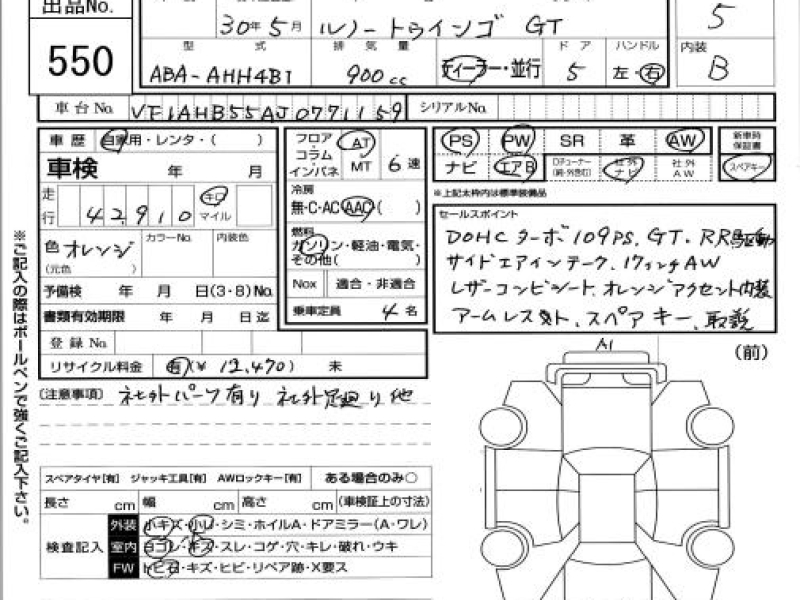 出品No.
550
30年5月 ルノートゥインゴ GT
5
型式 排気量 ドア ハンドル 内装
ABA-AHH4B1 900cc ディーラー・並行 5 左・右 B
車台No. VF1AHB55AJ0771159 シリアルNo.
車歴 自家用・レンタ・( )
車検 年 月
走行 42,910 キロ マイル
色 オレンジ カラーNo. 内装色
(元色 )
予備検 年 月 日(3・8)No.
書類有効期限 年 月 日迄
登録No.
リサイクル料金 有(¥ 12,470) 未
フロア・コラム・インパネ AT MT 6速
冷房
無・C・AC・AAC・( )
燃料
ガソリン・軽油・電気・その他( )
Nox 適合・非適合
乗車定員 4名
PS PW SR 革 AW 新車時保証書
ナビ エアB 社外ナビ 社外AW スペアキー
※上記太枠内は標準装備品
セールスポイント
DOHCターボ109PS、GT・RR駆動
サイドエアインテーク、17インチAW
レザーコンビシート、オレンジアクセント内装
アームレスト、スペアキー、取説
A1
(前)
(注意事項) 社外パーツ有り 社外足廻り他
※ご記入の際はボールペンで強くご記入下さい。
スペアタイヤ[有] ジャッキ工具[有] AWロックキー[有] ある場合のみ○
長さ cm 幅 cm 高さ cm (車検証上の寸法)
検査記入
外装 小キズ・小凹・シミ・ホイルA・ドアミラー(A・ワレ)
室内 ヨゴレ・キズ・スレ・コゲ・穴・キレ・破れ・ウキ
FW トビ石・キズ・ヒビ・リペア跡・X要ス